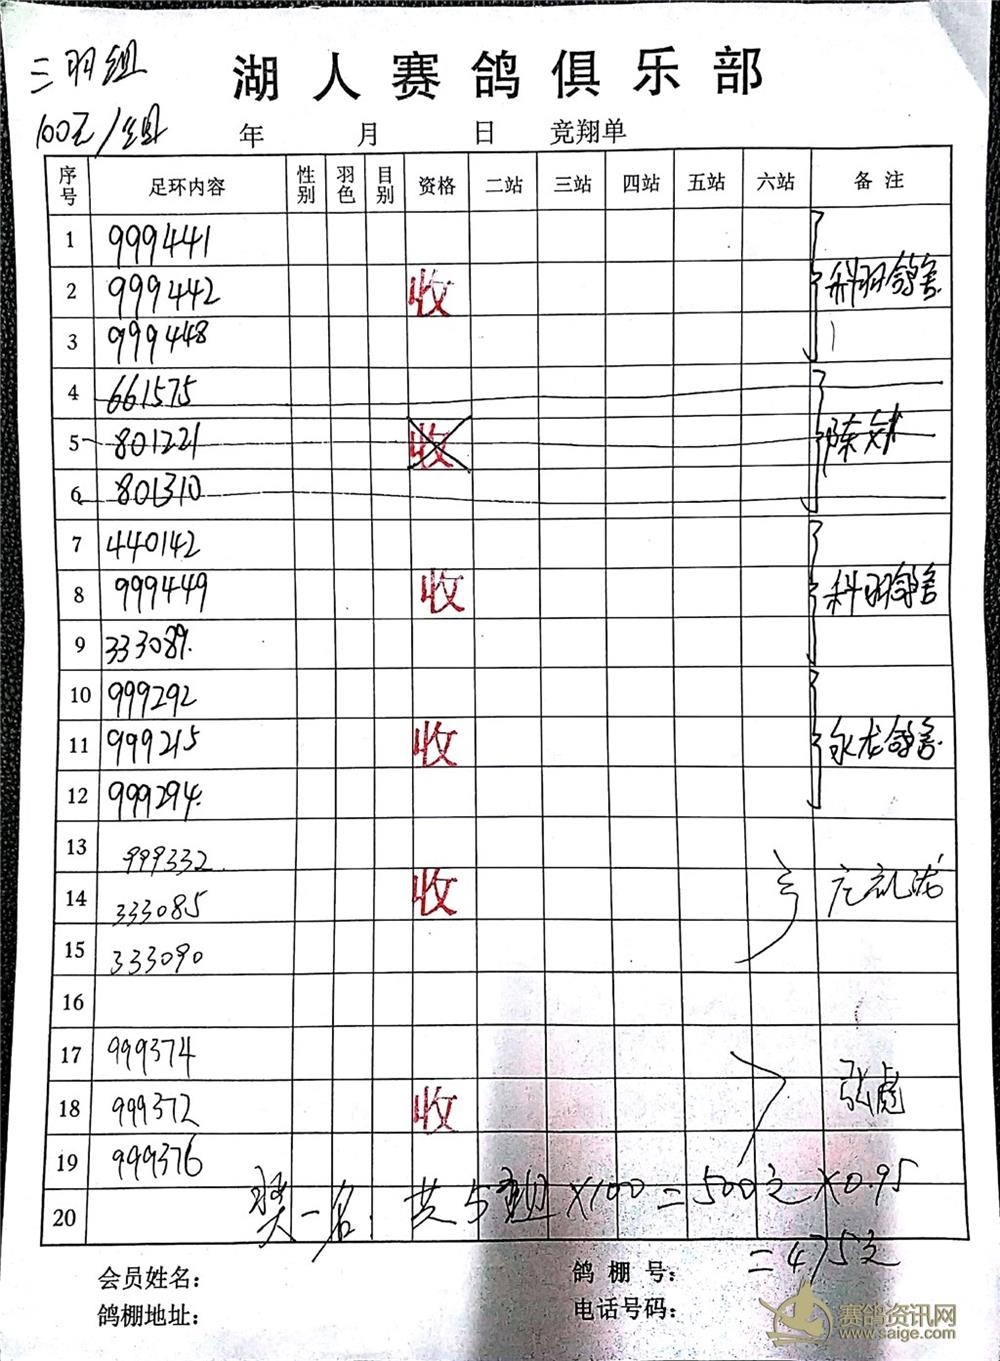 三羽组
湖人赛鸽俱乐部
100元/组
年 月 日 竞翔单
序号 足环内容 性别 羽色 目别 资格 二站 三站 四站 五站 六站 备注
1 999441
2 999442 收 科羽鸽舍
3 999448
4 661575
5 801221 收 陈斌
6 801310
7 440142
8 999449 收 科羽鸽舍
9 333089.
10 999292
11 999215 收 永龙鸽舍
12 999294.
13 999332.
14 333085 收
15 333090
16
17 999374
18 999372 收 张彪
19 999376
奖一名. 共5组×100=500元×0.95
20
=475元
会员姓名: 鸽棚号:
鸽棚地址: 电话号码:
赛鸽资讯网
www.saige.com